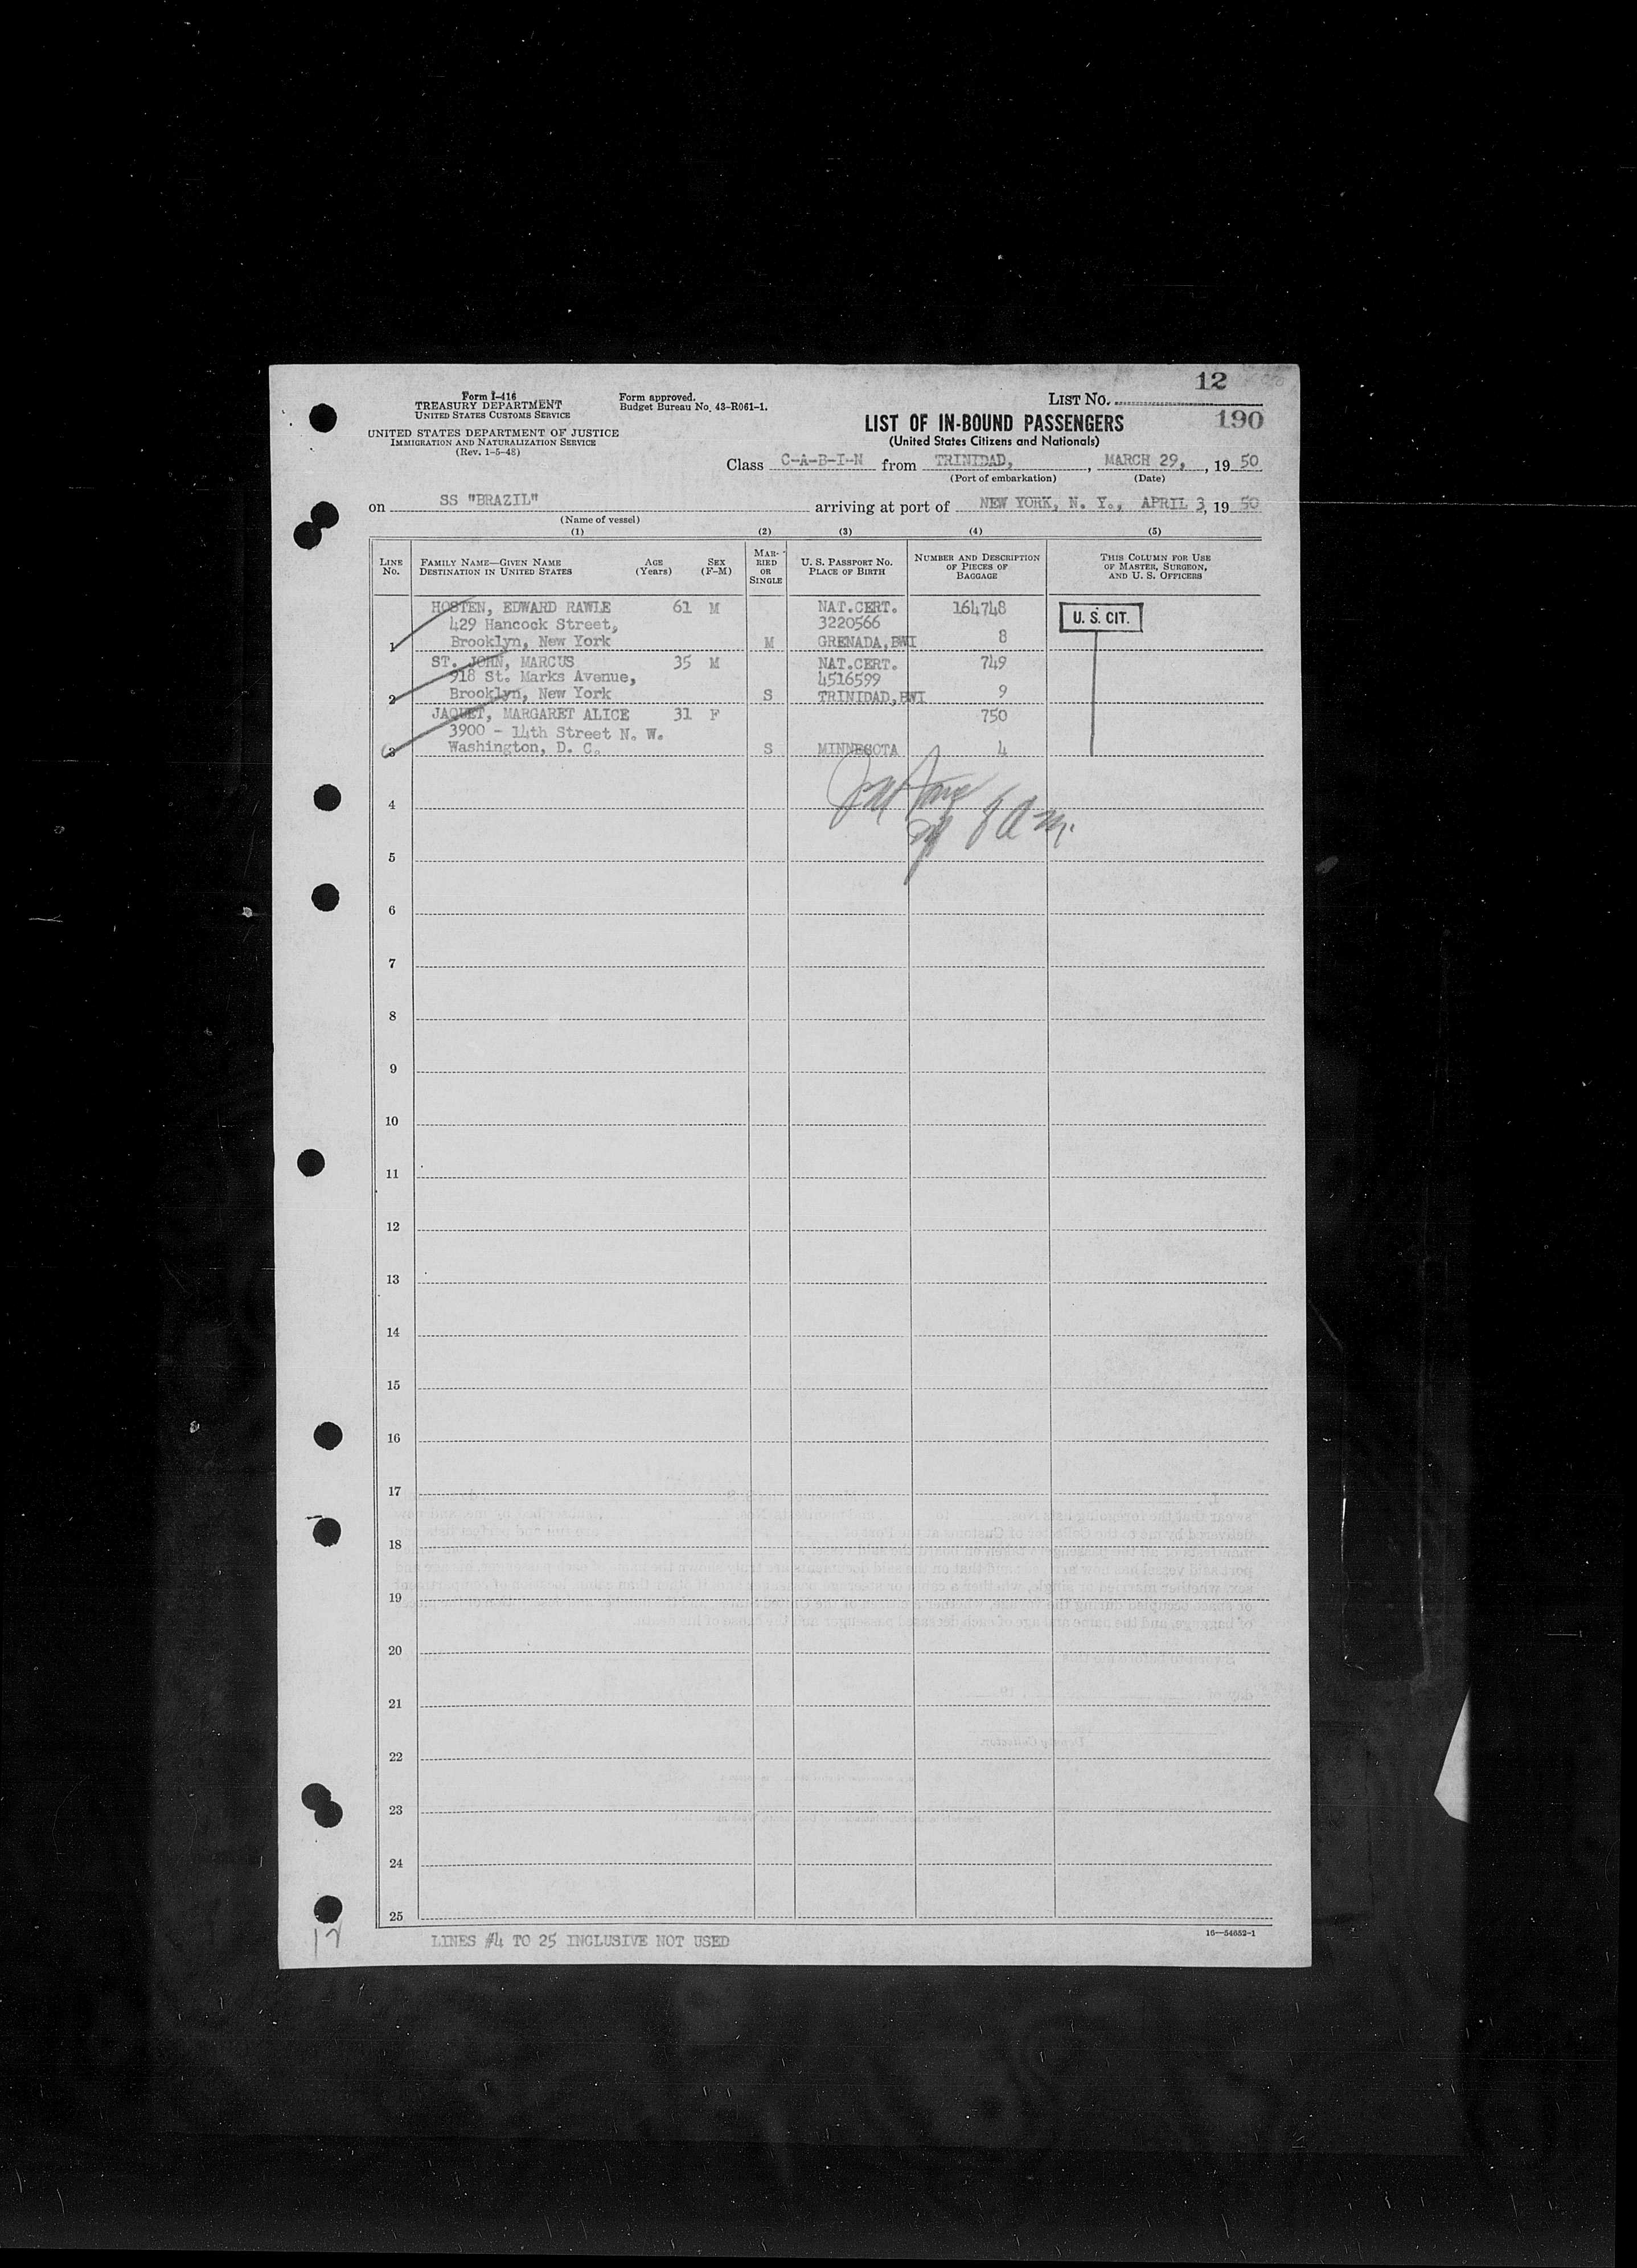 12
Form I-416
TREASURY DEPARTMENT
UNITED STATES CUSTOMS SERVICE
UNITED STATES DEPARTMENT OF JUSTICE
IMMIGRATION AND NATURALIZATION SERVICE
(Rev. 1-5-48)
Form approved.
Budget Bureau No. 43-R061-1.
LIST NO.
190
LIST OF IN-BOUND PASSENGERS
(United States Citizens and Nationals)
Class C-A-B-I-N from TRINIDAD, , MARCH 29, , 19 50
(Port of embarkation) (Date)
on SS "BRAZIL" arriving at port of NEW YORK, N. Y., APRIL 3, 19 50
(Name of vessel)
(1) (2) (3) (4) (5)
LINE NO.
FAMILY NAME—GIVEN NAME
DESTINATION IN UNITED STATES
AGE (Years)
SEX (F-M)
MAR-RIED OR SINGLE
U. S. PASSPORT NO.
PLACE OF BIRTH
NUMBER AND DESCRIPTION OF PIECES OF BAGGAGE
THIS COLUMN FOR USE OF MASTER, SURGEON, AND U. S. OFFICERS
HOSTEN, EDWARD RAWLE 61 M NAT.CERT. 164748
429 Hancock Street, 3220566 U. S. CIT.
1 Brooklyn, New York M GRENADA,BWI 8
ST. JOHN, MARCUS 35 M NAT.CERT. 749
918 St. Marks Avenue, 4516599
2 Brooklyn, New York S TRINIDAD,BWI 9
JAQUET, MARGARET ALICE 31 F 750
3900 - 14th Street N. W.
3 Washington, D. C. S MINNESOTA 4
4
5
6
7
8
9
10
11
12
13
14
15
16
17
18
19
20
21
22
23
24
25
LINES #4 TO 25 INCLUSIVE NOT USED
16—54652-1
12